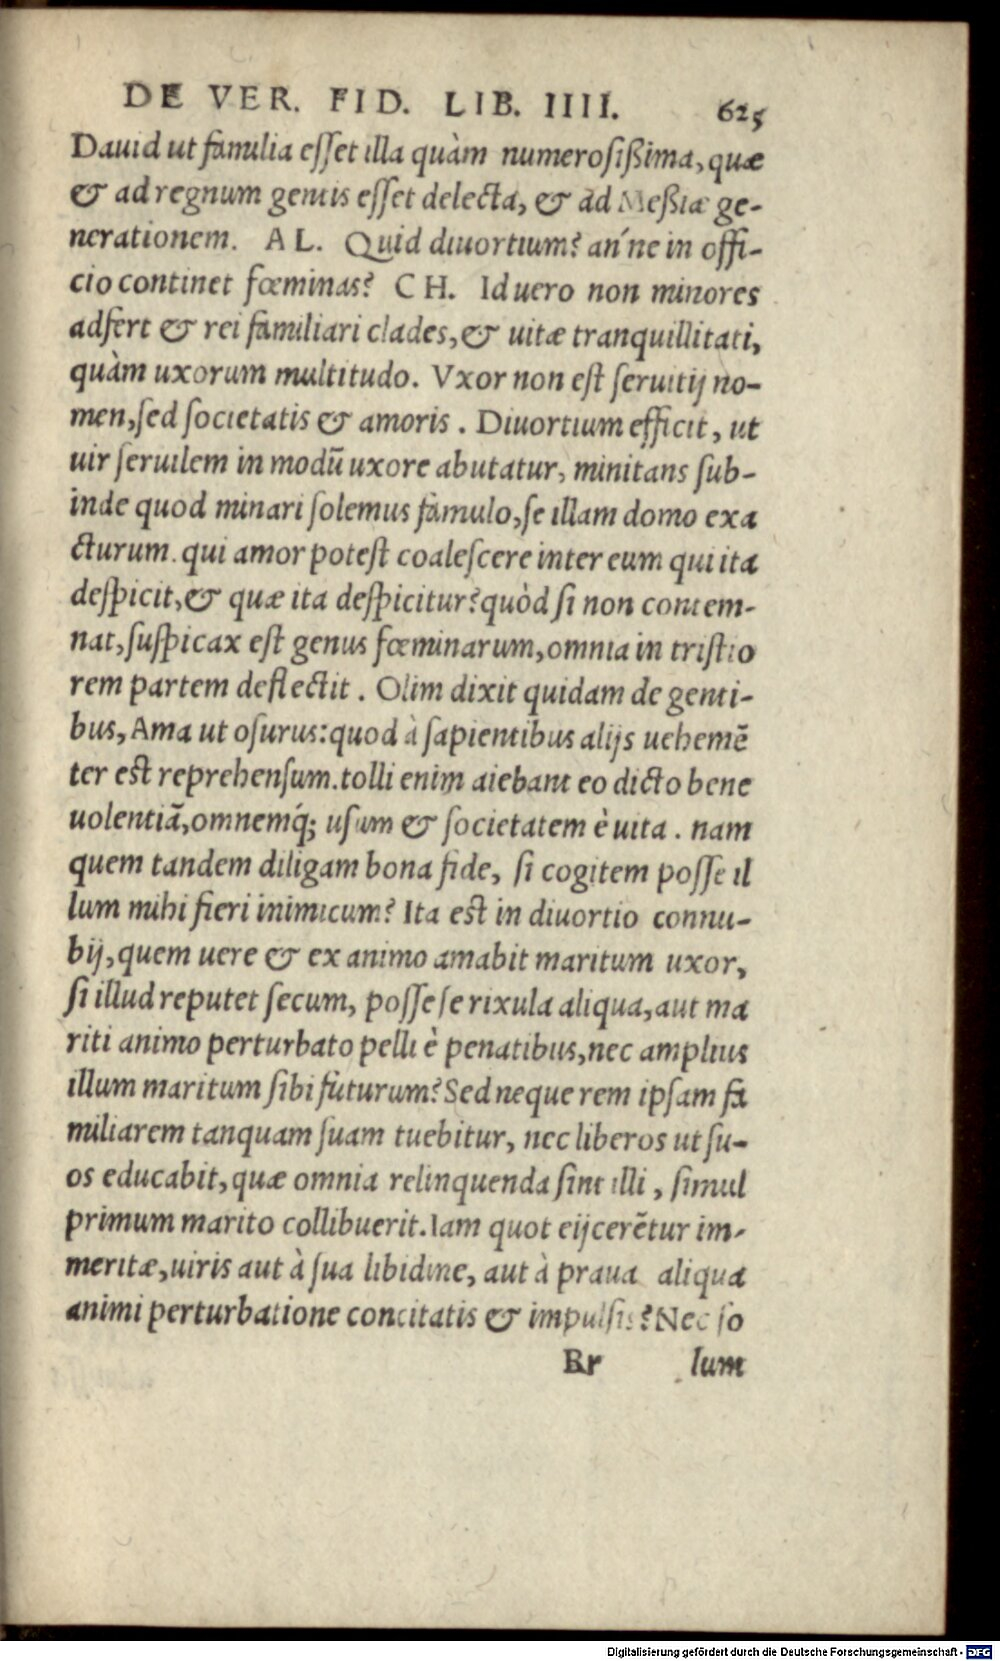 DE VER. FID. LIB. IIII. 625
Dauid ut familia eſſet illa quàm numeroſißima, quæ
& ad regnum gentis eſſet delecta, & ad Meßiæ ge-
nerationem. AL. Quid diuortium? an'ne in offi-
cio continet fœminas? CH. Id uero non minores
adfert & rei familiari clades, & uitæ tranquillitati,
quàm uxorum multitudo. Vxor non eſt ſeruitij no-
men, ſed ſocietatis & amoris. Diuortium efficit, ut
uir ſeruilem in modū uxore abutatur, minitans ſub-
inde quod minari ſolemus famulo, ſe illam domo exa
cturum. qui amor poteſt coaleſcere inter eum qui ita
deſpicit, & quæ ita deſpicitur? quòd ſi non contem-
nat, ſuſpicax eſt genus fœminarum, omnia in triſtio
rem partem deflectit. Olim dixit quidam de genti-
bus, Ama ut oſurus: quod à ſapientibus alijs uehemē
ter eſt reprehenſum. tolli enim aiebant eo dicto bene
uolentiā, omnemq́; uſum & ſocietatem è uita. nam
quem tandem diligam bona fide, ſi cogitem poſſe il
lum mihi fieri inimicum? Ita eſt in diuortio connu-
bij, quem uere & ex animo amabit maritum uxor,
ſi illud reputet ſecum, poſſe ſe rixula aliqua, aut ma
riti animo perturbato pelli è penatibus, nec amplius
illum maritum ſibi futurum? Sed neque rem ipſam fa
miliarem tanquam ſuam tuebitur, nec liberos ut ſu-
os educabit, quæ omnia relinquenda ſint illi, ſimul
primum marito collibuerit. Iam quot eijcerētur im-
meritæ, uiris aut à ſua libidine, aut à praua aliqua
animi perturbatione concitatis & impulſis? Nec ſo
Rr lum
Digitalisierung gefördert durch die Deutsche Forschungsgemeinschaft - DFG